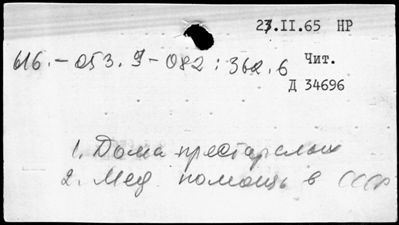 23.II.65 НР
616.-053.9-082:362.6
Чит.
Д 34696
1. Дома престарелых
2. Мед. помощь в СССР